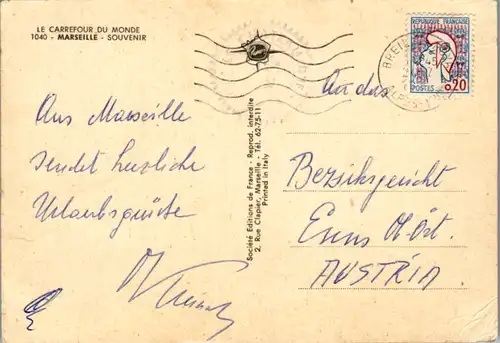 LE CARREFOUR DU MONDE
1040 - MARSEILLE - SOUVENIR
Aus Marseille
sendet herzliche
Urlaubsgrüße
Société Editions de France - Reprod. interdite
2, Rue Clapier, Marseille - Tél. 62-75-11
Printed in Italy
REPUBLIQUE FRANÇAISE
POSTES 0,20
An das
Bezirksgericht
Enns O.Öst.
AUSTRIA